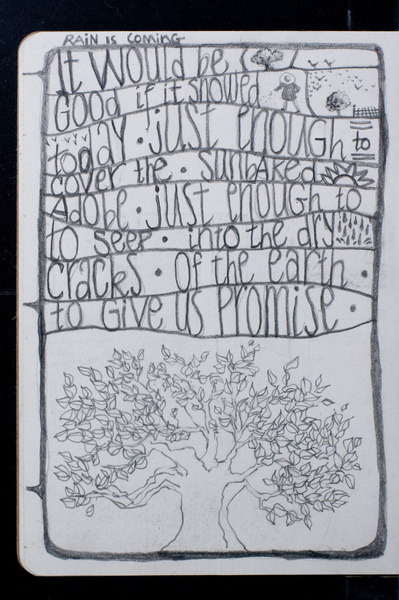 RAIN IS COMING
It would be
Good if it snowed
today • just enough to
cover the • sunbaked
Adobe • just enough to
to seep • into the dry
cracks • of the earth •
to Give us promise •